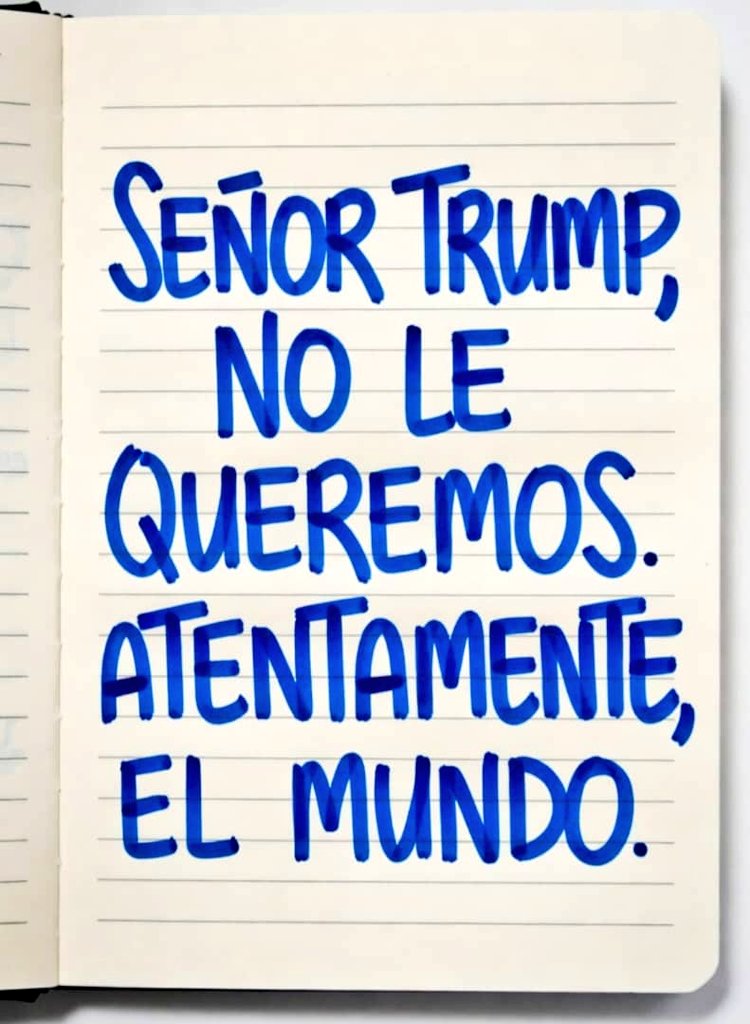 SEÑOR TRUMP,
NO LE
QUEREMOS.
ATENTAMENTE,
EL MUNDO.